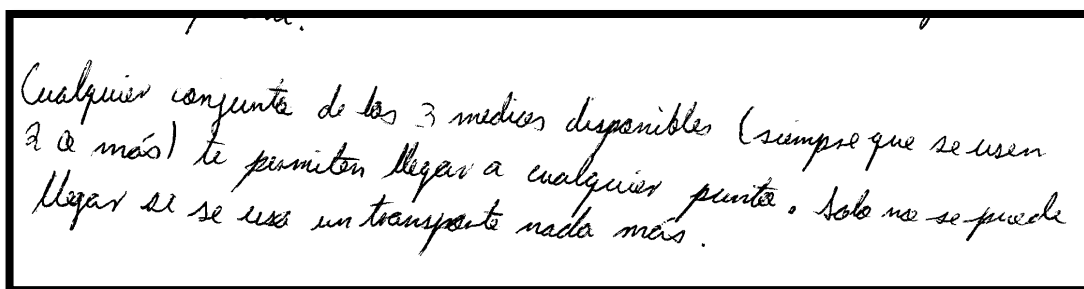 Cualquier conjunto de los 3 medios disponibles (siempre que se usen
2 o más) te permiten llegar a cualquier punto. Solo no se puede
llegar si se usa un transporte nada más.